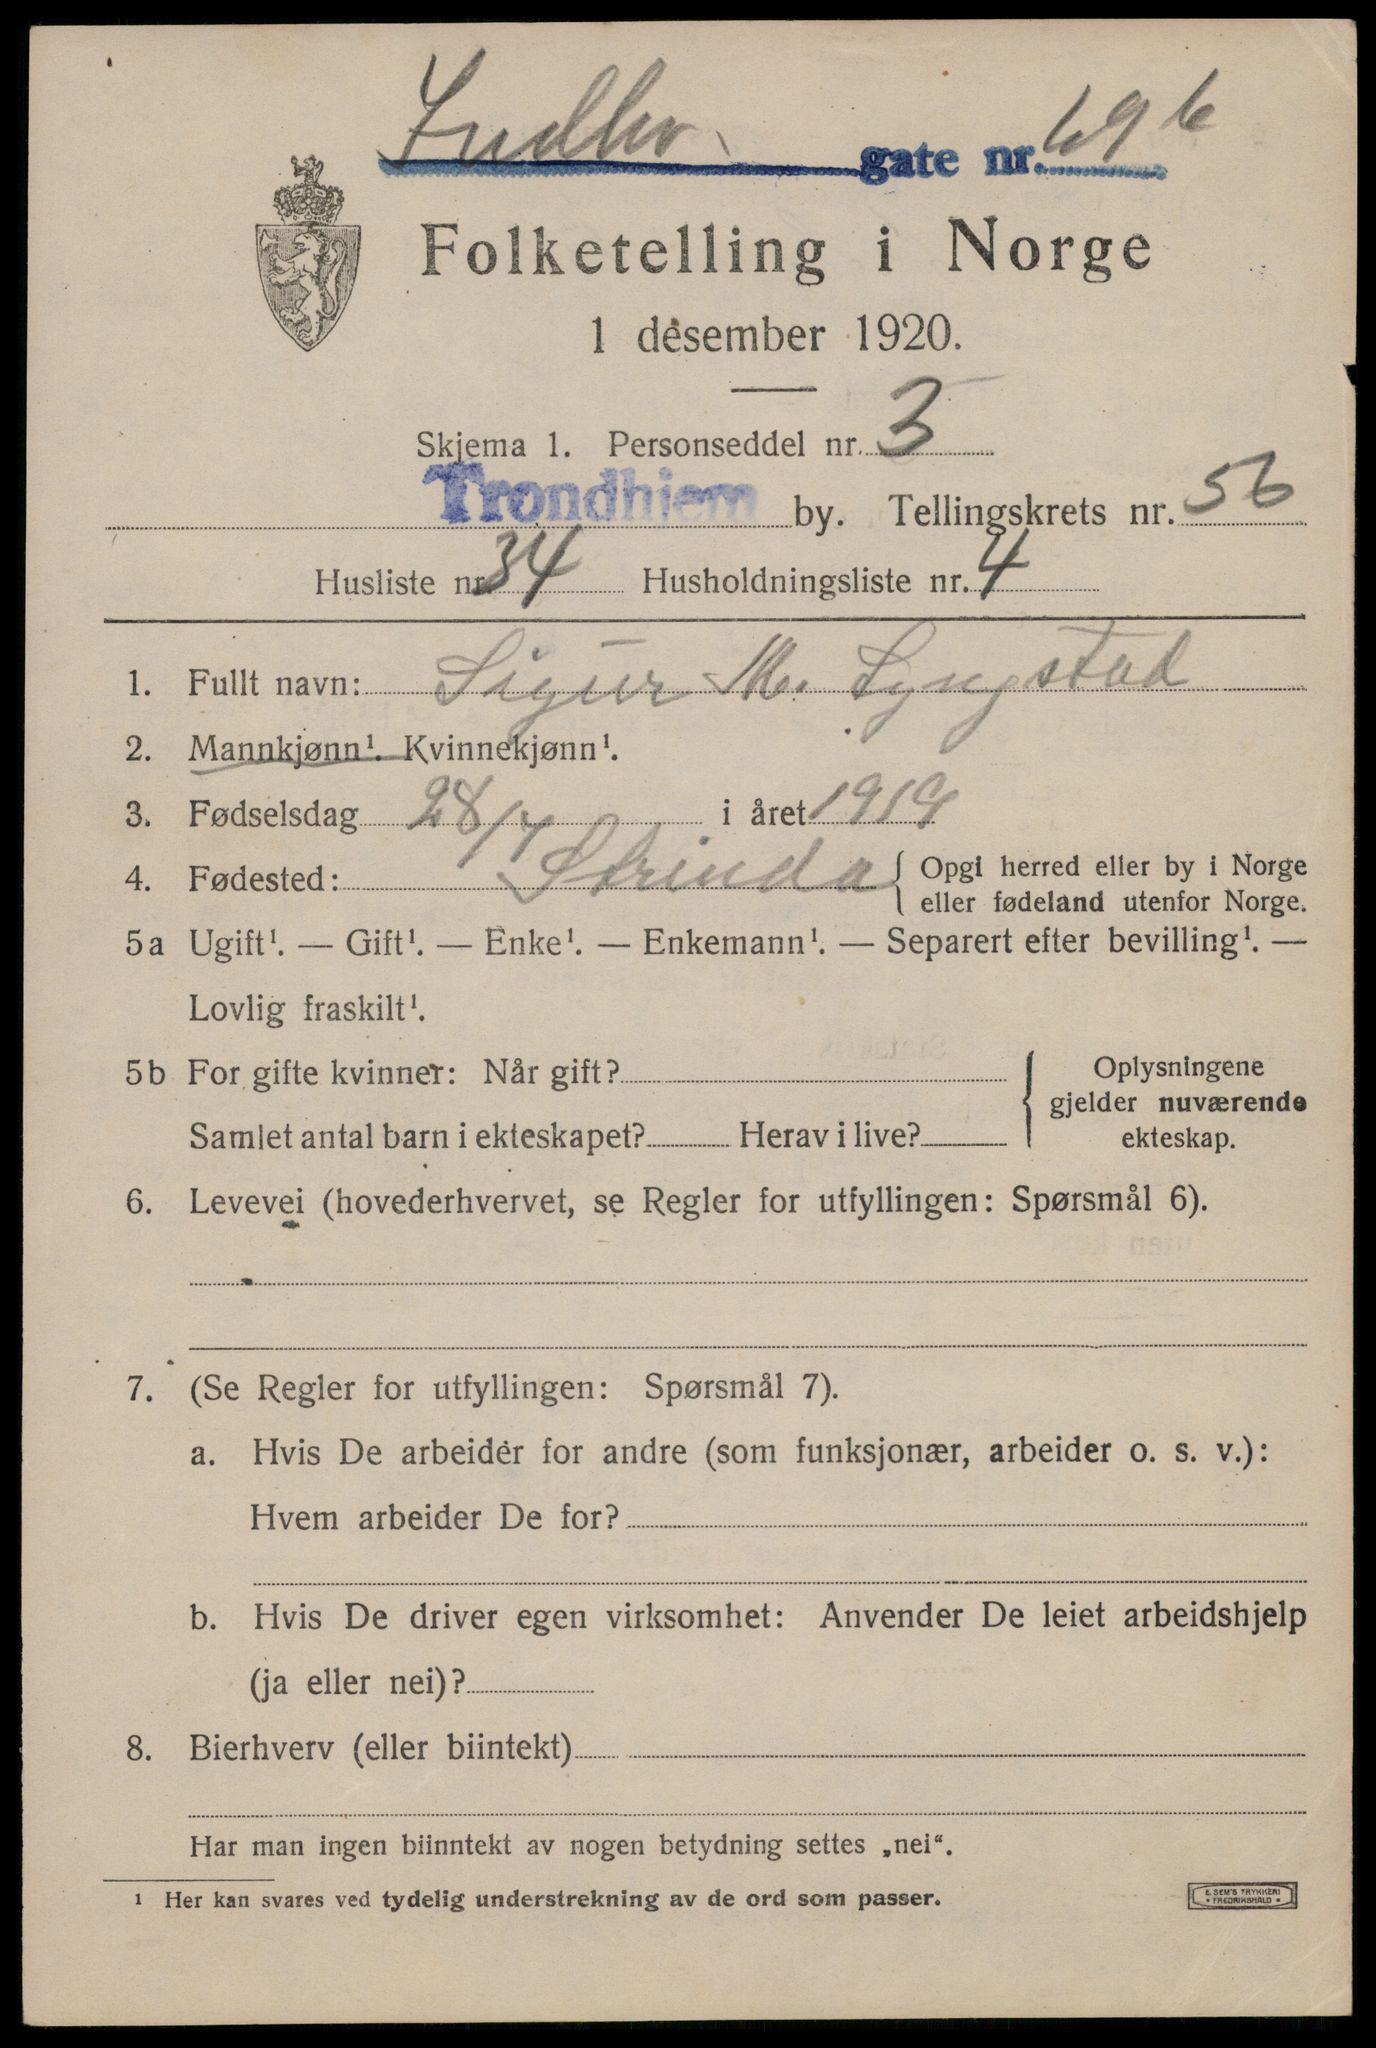 Indhr. gate nr. 69 b
Folketelling i Norge
1 desember 1920.
Skjema 1. Personseddel nr. 3
Trondhjem by. Tellingskrets nr. 56
Husliste nr. 34 Husholdningsliste nr. 4
1. Fullt navn: Sigur M. Lyngstad
2. Mannkjønn¹. Kvinnekjønn¹.
3. Fødselsdag 28/7 i året 1919
4. Fødested: Strinda { Opgi herred eller by i Norge
eller fødeland utenfor Norge.
5a Ugift¹. — Gift¹. — Enke¹. — Enkemann¹. — Separert efter bevilling¹. —
Lovlig fraskilt¹.
5b For gifte kvinner: Når gift? { Oplysningene
gjelder nuværende
Samlet antal barn i ekteskapet? Herav i live? ekteskap.
6. Levevei (hovederhvervet, se Regler for utfyllingen: Spørsmål 6).
7. (Se Regler for utfyllingen: Spørsmål 7).
a. Hvis De arbeider for andre (som funksjonær, arbeider o. s. v.):
Hvem arbeider De for?
b. Hvis De driver egen virksomhet: Anvender De leiet arbeidshjelp
(ja eller nei)?
8. Bierhverv (eller biintekt)
Har man ingen biinntekt av nogen betydning settes „nei“.
¹ Her kan svares ved tydelig understrekning av de ord som passer.
E. SEM'S TRYKKERI
• FREDRIKSHALD •